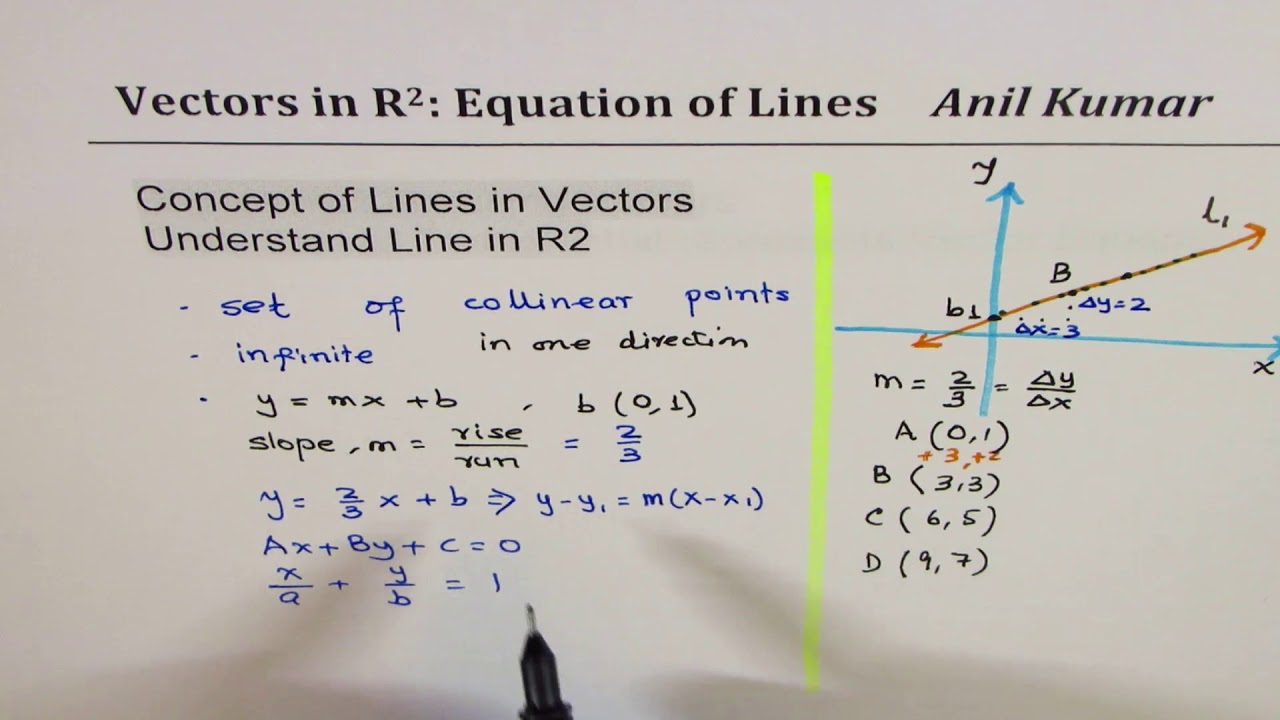 Vectors in R²: Equation of Lines Anil Kumar
Concept of Lines in Vectors
Understand Line in R2
· set of collinear points
in one direction
- infinite
· y = mx + b , b (0,1)
slope, m = rise/run = 2/3
y = 2/3 x + b ⇒ y - y₁ = m(x - x₁)
Ax + By + C = 0
x/a + y/b = 1
y
l₁
B
b1
Δy = 2
Δx = 3
x
m = 2/3 = Δy/Δx
A (0,1)
+3, +2
B (3,3)
C (6,5)
D (9,7)